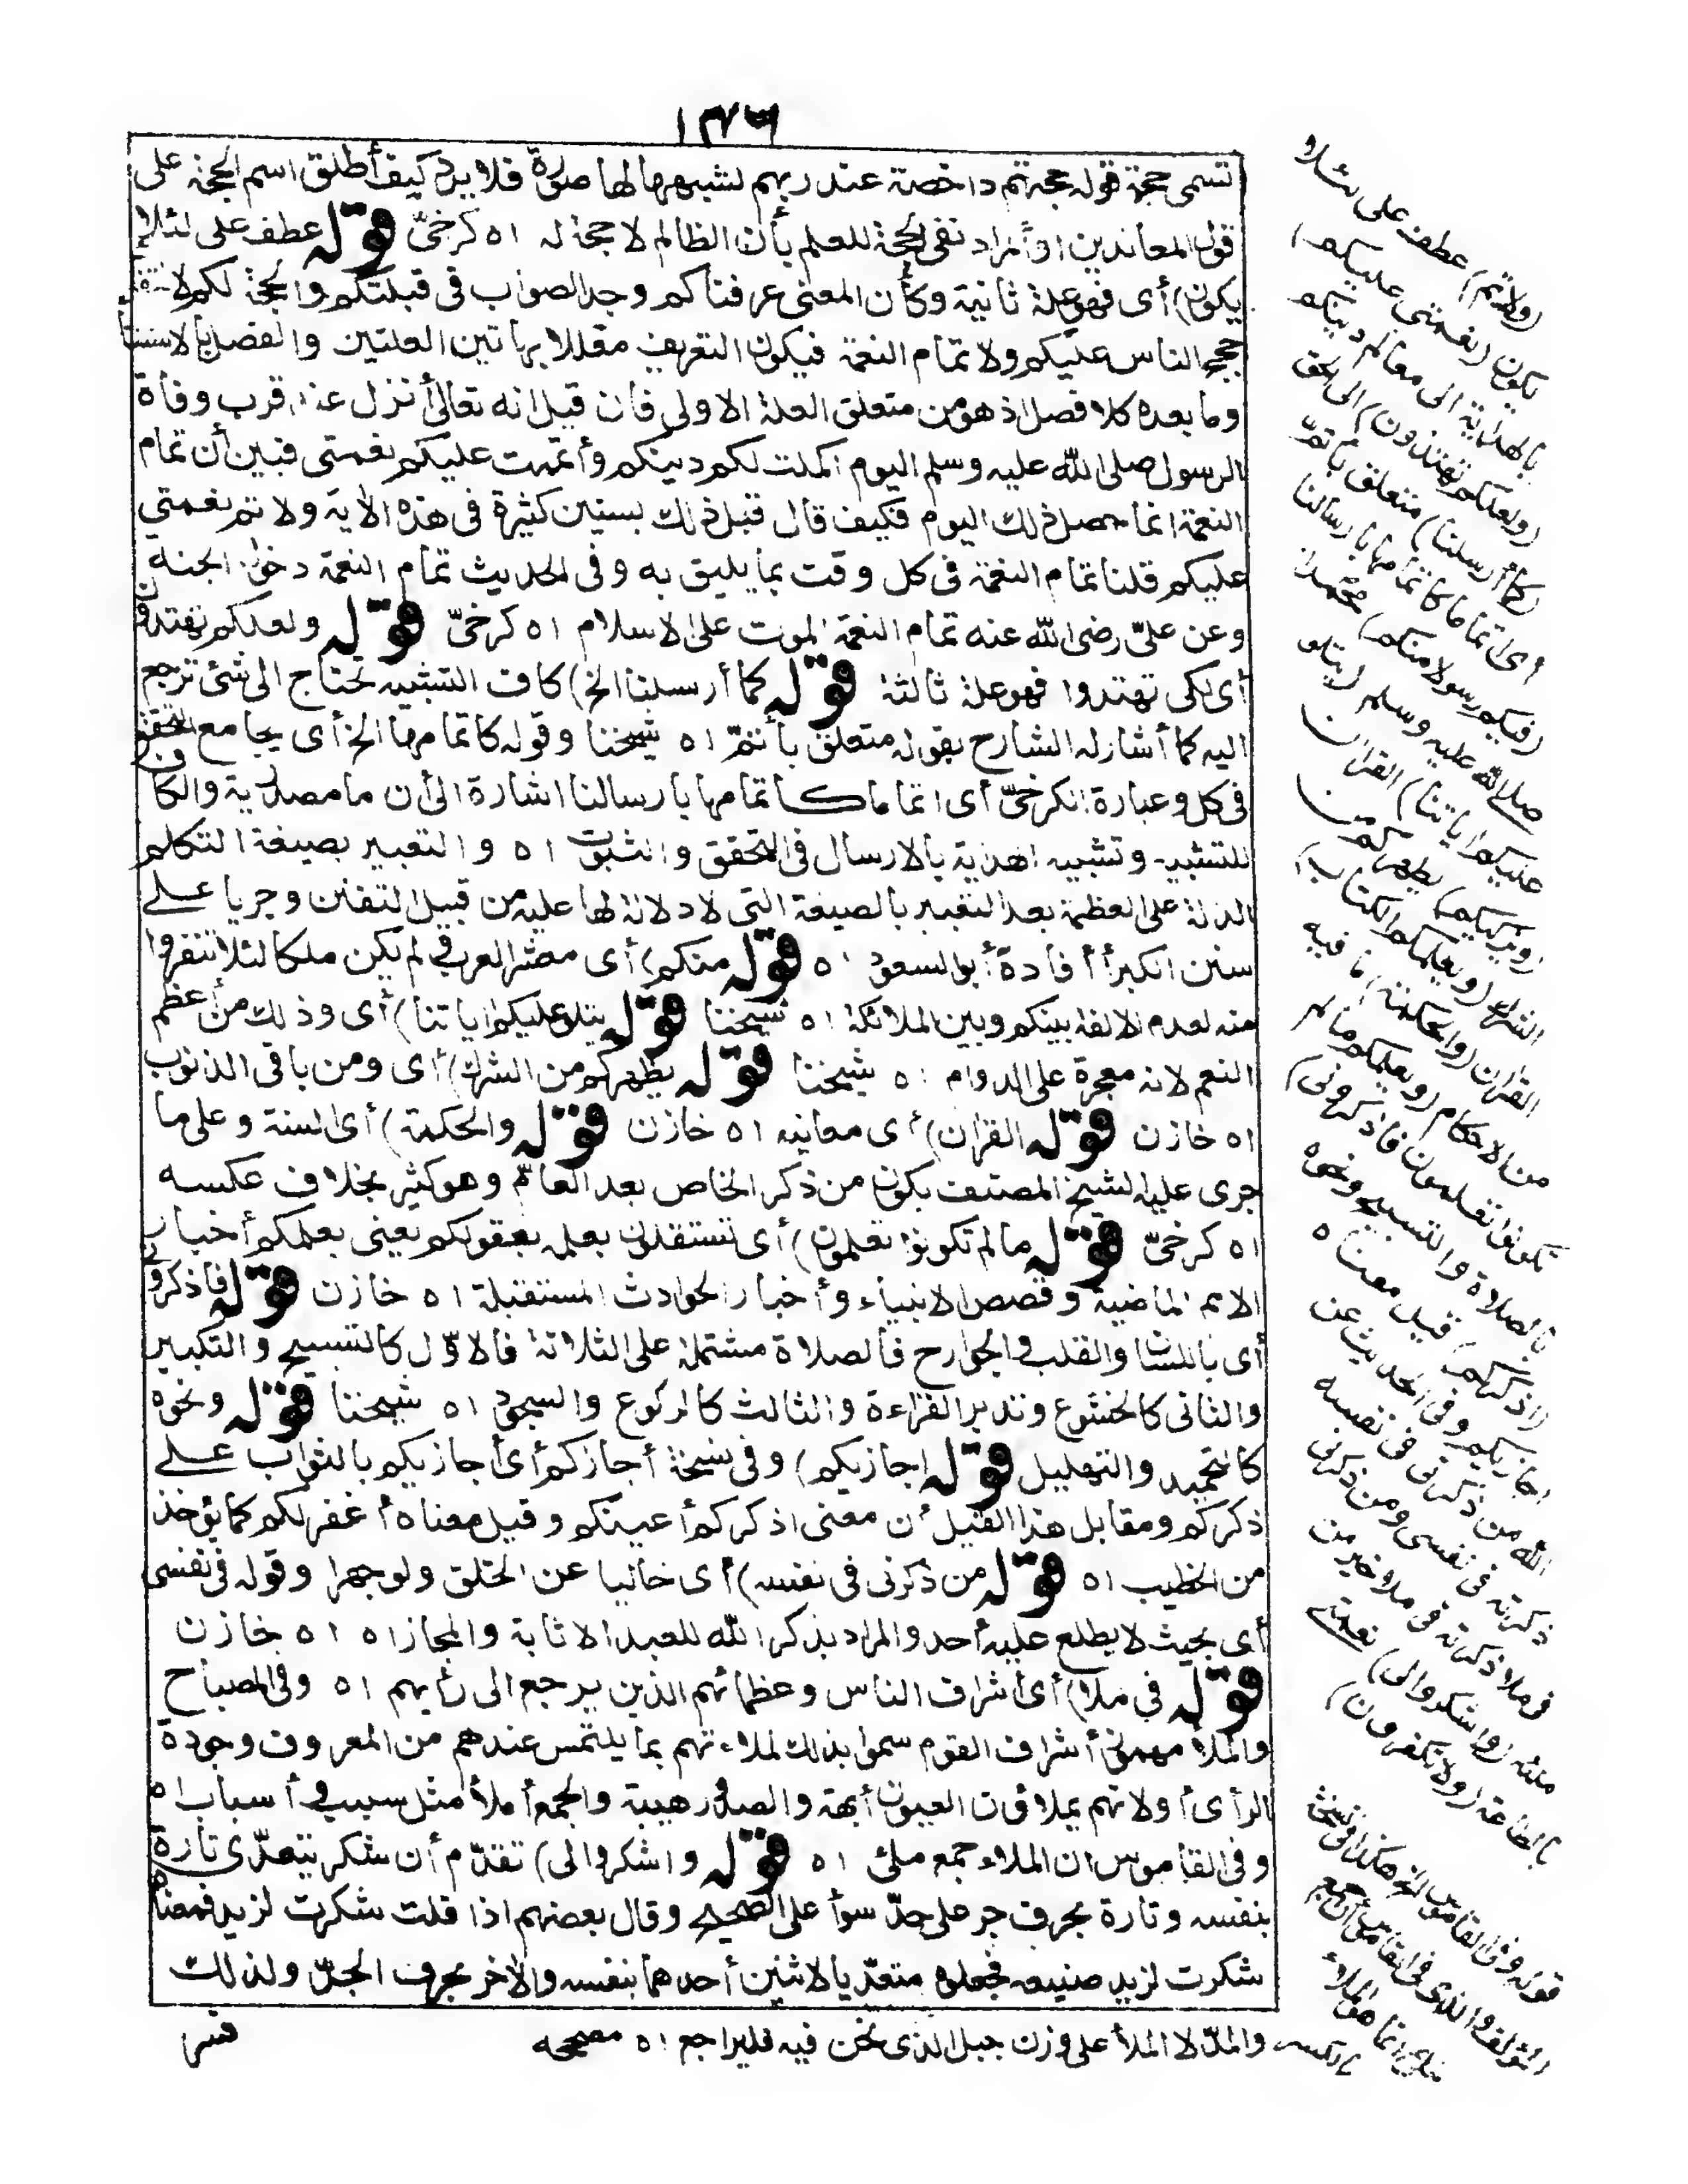 ١٣٦
تسمى حجة قوله حجتهم داحضة عند ربهم لشبهها لها صورة فلا يرد كيف أطلق اسم الحجة على
قول المعاندين أو المراد نفى الحجة للعلم بأن الظالم لا حجة له اه كرخىّ قوله عطف على لئلا
يكون) أى فهو علة ثانية وكأن المعنى عرفناكم وجه الصواب فى قبلتكم والحجة لكم لانتفاء
حجج الناس عليكم ولاتمام النعمة فيكون التعريف معللا بهاتين العلتين والفصل بالاستثناء
وما بعده كلا فصل اذ هو من متعلق العلة الاولى فان قيل انه تعالى أنزل عند قرب وفاة
الرسول صلى الله عليه وسلم اليوم اكملت لكم دينكم وأتممت عليكم نعمتى فبين أن تمام
النعمة انما حصل ذلك اليوم فكيف قال قبل ذلك بسنين كثيرة فى هذه الاية ولا تم نعمتي
عليكم قلنا تمام النعمة فى كل وقت بما يليق به وفى الحديث تمام النعمة دخول الجنه
وعن علىّ رضى الله عنه تمام النعمة الموت على الاسلام اه كرخىّ قوله ولعلكم تهتدون
أى لكى تهتدوا فهو علة ثالثة قوله كما أرسلنا الخ) كاف التشبيه تحتاج الى شئ ترجع
اليه كما أشار له الشارح بقوله متعلق بأتمّ اه شيخنا وقوله كاتمامها الخ أى بجامع التحقق
فى كل وعبارة الكرخىّ أى اتماما كاتمامها بارسالنا اشارة الى أن ما مصدرية والكاف
للتشبيه وتشبيه الهداية بالارسال فى التحقق والثبوت اه والتعبير بصيغة التكلم
الدالة على العظمة بعد التعبير بالصيغة التى لا دلالة لها عليه من قبيل التفنن وجريا على
سنن الكبرأ أفادة أبو السعود اه قوله منكم) أى معشر العرب فى لم يكن ملكا لئلا تنفروا
منه لعدم الالفة بينكم وبين الملائكة اه شيخنا قوله يتلو عليكم اياتنا) أى وذلك من أعظم
النعم لانه معجزة على الدوام اه شيخنا قوله يطهركم من الشرك) أى ومن باقى الذنوب
اه خازن قوله القران) أى معانيه اه خازن قوله والحكمة) أى السنة وعلى ما
جرى عليه الشيخ المصنف يكون من ذكر الخاص بعد العامّ وهو كثير بخلاف عكسه
اه كرخىّ قوله ما لم تكونوا تعلمون) أى تستقلون بعلمه بعقولكم يعنى يعلمكم أخبار
الامم الماضية وقصص الانبياء وأخبار الحوادث المستقبلة اه خازن قوله فاذكرونى
أى باللسان والقلب والجوارح فالصلاة مشتملة على الثلاثة فالاوّل كالتسبيح والتكبير
والثانى كالخشوع وتدبر القراءة والثالث كالركوع والسجود اه شيخنا قوله ونحوه
كالتحميد والتهليل قوله اجازيكم) وفى نسخة أجازكم أى أجازيكم بالثواب على
ذكركم ومقابل هذا القيل أن معنى اذكركم أعينكم وقيل معناه أغفر لكم كما يؤخذ
من الخطيب اه قوله من ذكرنى فى نفسه) أى خاليا عن الخلق ولو جهرا وقوله فى نفسى
أى بحيث لا يطلع عليه أحد والمراد بذكر الله للعبد الاثابة والمجازاه اه خازن
قوله فى ملا) أى أشراف الناس وعظمائهم الذين يرجع الى رأيهم اه وفى المصباح
والملأ مهموز أشراف القوم سموا بذلك لملاءتهم بما يلتمس عندهم من المعروف وجودة
الرأى أو لانهم يملاؤن العيون أبهة والصدور هيبة والجمع أملأ مثل سبب وأسباب اه
وفى القاموس ان الملاء جمع ملئ اه قوله واشكروا لى) تقدّم أن شكر يتعدّى تارة
بنفسه وتارة بحرف جر على حدّ سوأ على الصحيح وقال بعضهم اذا قلت شكرت لزيد فمعناه
شكرت لزيد صنيعه فجعلوه متعدّيا لاثنين أحدهما بنفسه والآخر بحرف الجرّ ولذلك
فسر
(ولاتم) عطف على لئلا
يكون (نعمتى عليكم)
بالهداية الى معالم دينكم
(ولعلكم تهتدون) الى الحق
(كما أرسلنا) متعلق باتمّ
أى اتماما كاتمامها بارسالنا
(فيكم رسولا منكم) محمدا
صلى الله عليه وسلم (يتلو
عليكم اياتنا) القران
(ويزكيكم) يطهركم من
الشرك (ويعلمكم الكتاب)
القران (والحكمة) ما فيه
من الاحكام (ويعلمكم ما لم
تكونوا تعلمون فاذكرونى)
بالصلاة والتسبيح ونحوه
(اذكركم) قيل معناه
اجازيكم وفى الحديث عن
الله من ذكرنى فى نفسه
ذكرته فى نفسى ومن ذكرنى
فى ملا ذكرته فى ملا خير من
ملئه (واشكروا لى) نعمتى
بالطاعة (ولا تكفرون)
قوله وفى القاموس الخ هكذا فى نسخة
المؤلف والذى فى القاموس أن جمع
ملئ انما هو الملاء
بالكسر والمدّ لا الملأ على وزن جبل الذى نحن فيه فليراجع اه مصححه